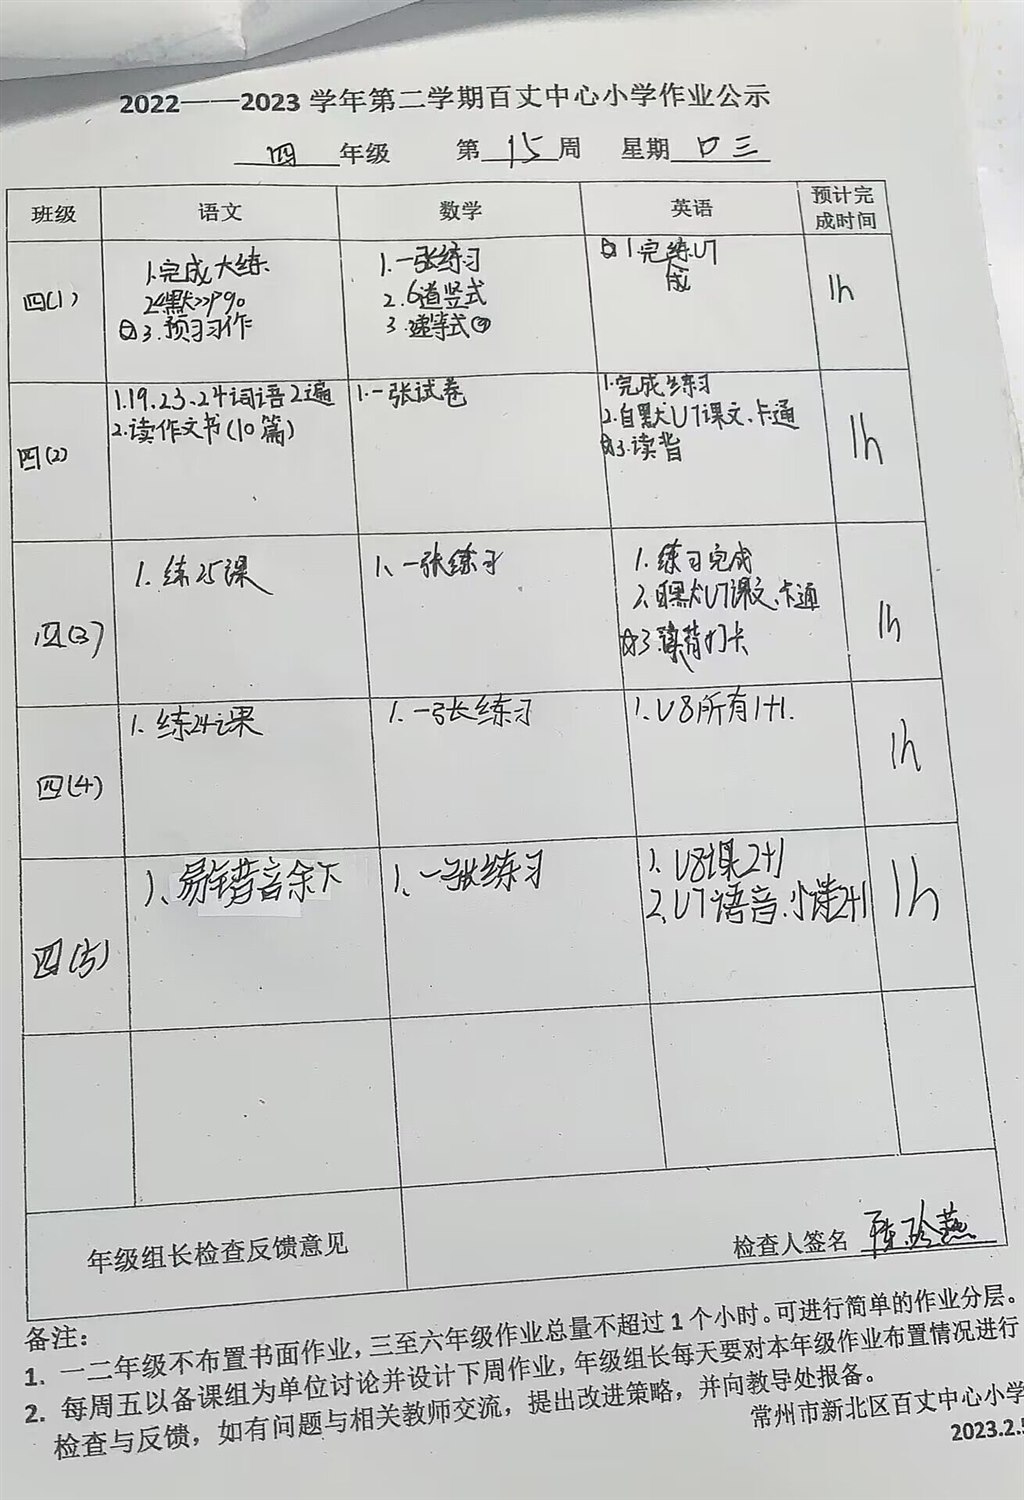 2022——2023 学年第二学期百丈中心小学作业公示
四 年级 第 15 周 星期 三
班级 语文 数学 英语 预计完成时间
四(1)
1.完成大练
3.预习习作
1.一张练习
2.6道竖式
3.递等式
1完成练U7
1h
四(2)
1.19.23.24词语2遍
2.读作文书(10篇)
1.一张试卷
1.完成练习
2.自默U7课文.卡通
☆3.读背
1h
四(3)
1.练25课
1、一张练习
1.练习完成
2.自默U7课文.卡通
☆3.读背打卡
1h
四(4)
1.练24课
1.一张练习
1.U8所有1+1.
1h
四(5)
1、易错音
1、一张练习
1.U8课2+1
2.U7语音.2+1
1h
年级组长检查反馈意见
检查人签名 陈玲燕
备注：
1. 一二年级不布置书面作业，三至六年级作业总量不超过 1 个小时。可进行简单的作业分层。
2. 每周五以备课组为单位讨论并设计下周作业，年级组长每天要对本年级作业布置情况进行
检查与反馈，如有问题与相关教师交流，提出改进策略，并向教导处报备。
常州市新北区百丈中心小学
2023.2.5